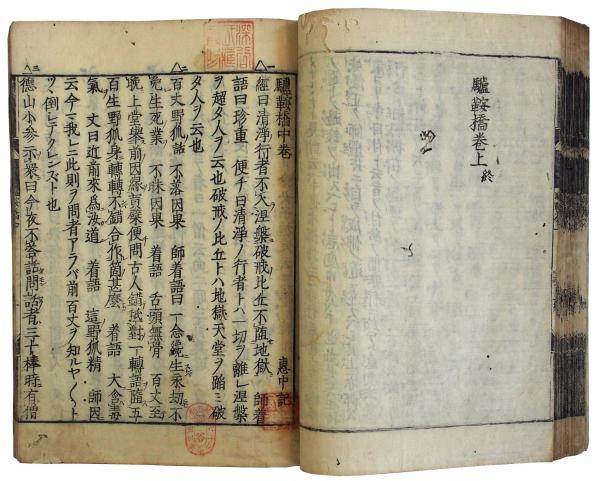 驢鞍橋巻上終
驢鞍橋中巻 惠中記
一 經曰清淨行者不入涅槃破戒比丘不堕地獄 師着
語曰珍重 便チ曰清淨ノ行者トハ一切ヲ離レ涅槃
ヲ超タ人ヲ云也破戒ノ比丘トハ地獄天堂ヲ蹈ミ破
タ人ヲ云也
二 百丈野狐話 不落因果 師着語曰一念纔生永劫不
免生死業 不昧因果 着語 舌頭無骨 百丈至
晩上堂舉前因縁黄檗便問古人錯祗對一轉語堕五
百生野狐身轉轉不錯合作箇甚麽 着語 大含毒
氣 丈曰近前來爲汝道 着語 這野狐精 師因
云今ニ我レニ此則ヲ問者アラバ前百丈ヲ知ルヤ〱ト
倒レテクレンズト也
三 德山小参示衆曰今夜不答話問話者三十棒時有僧